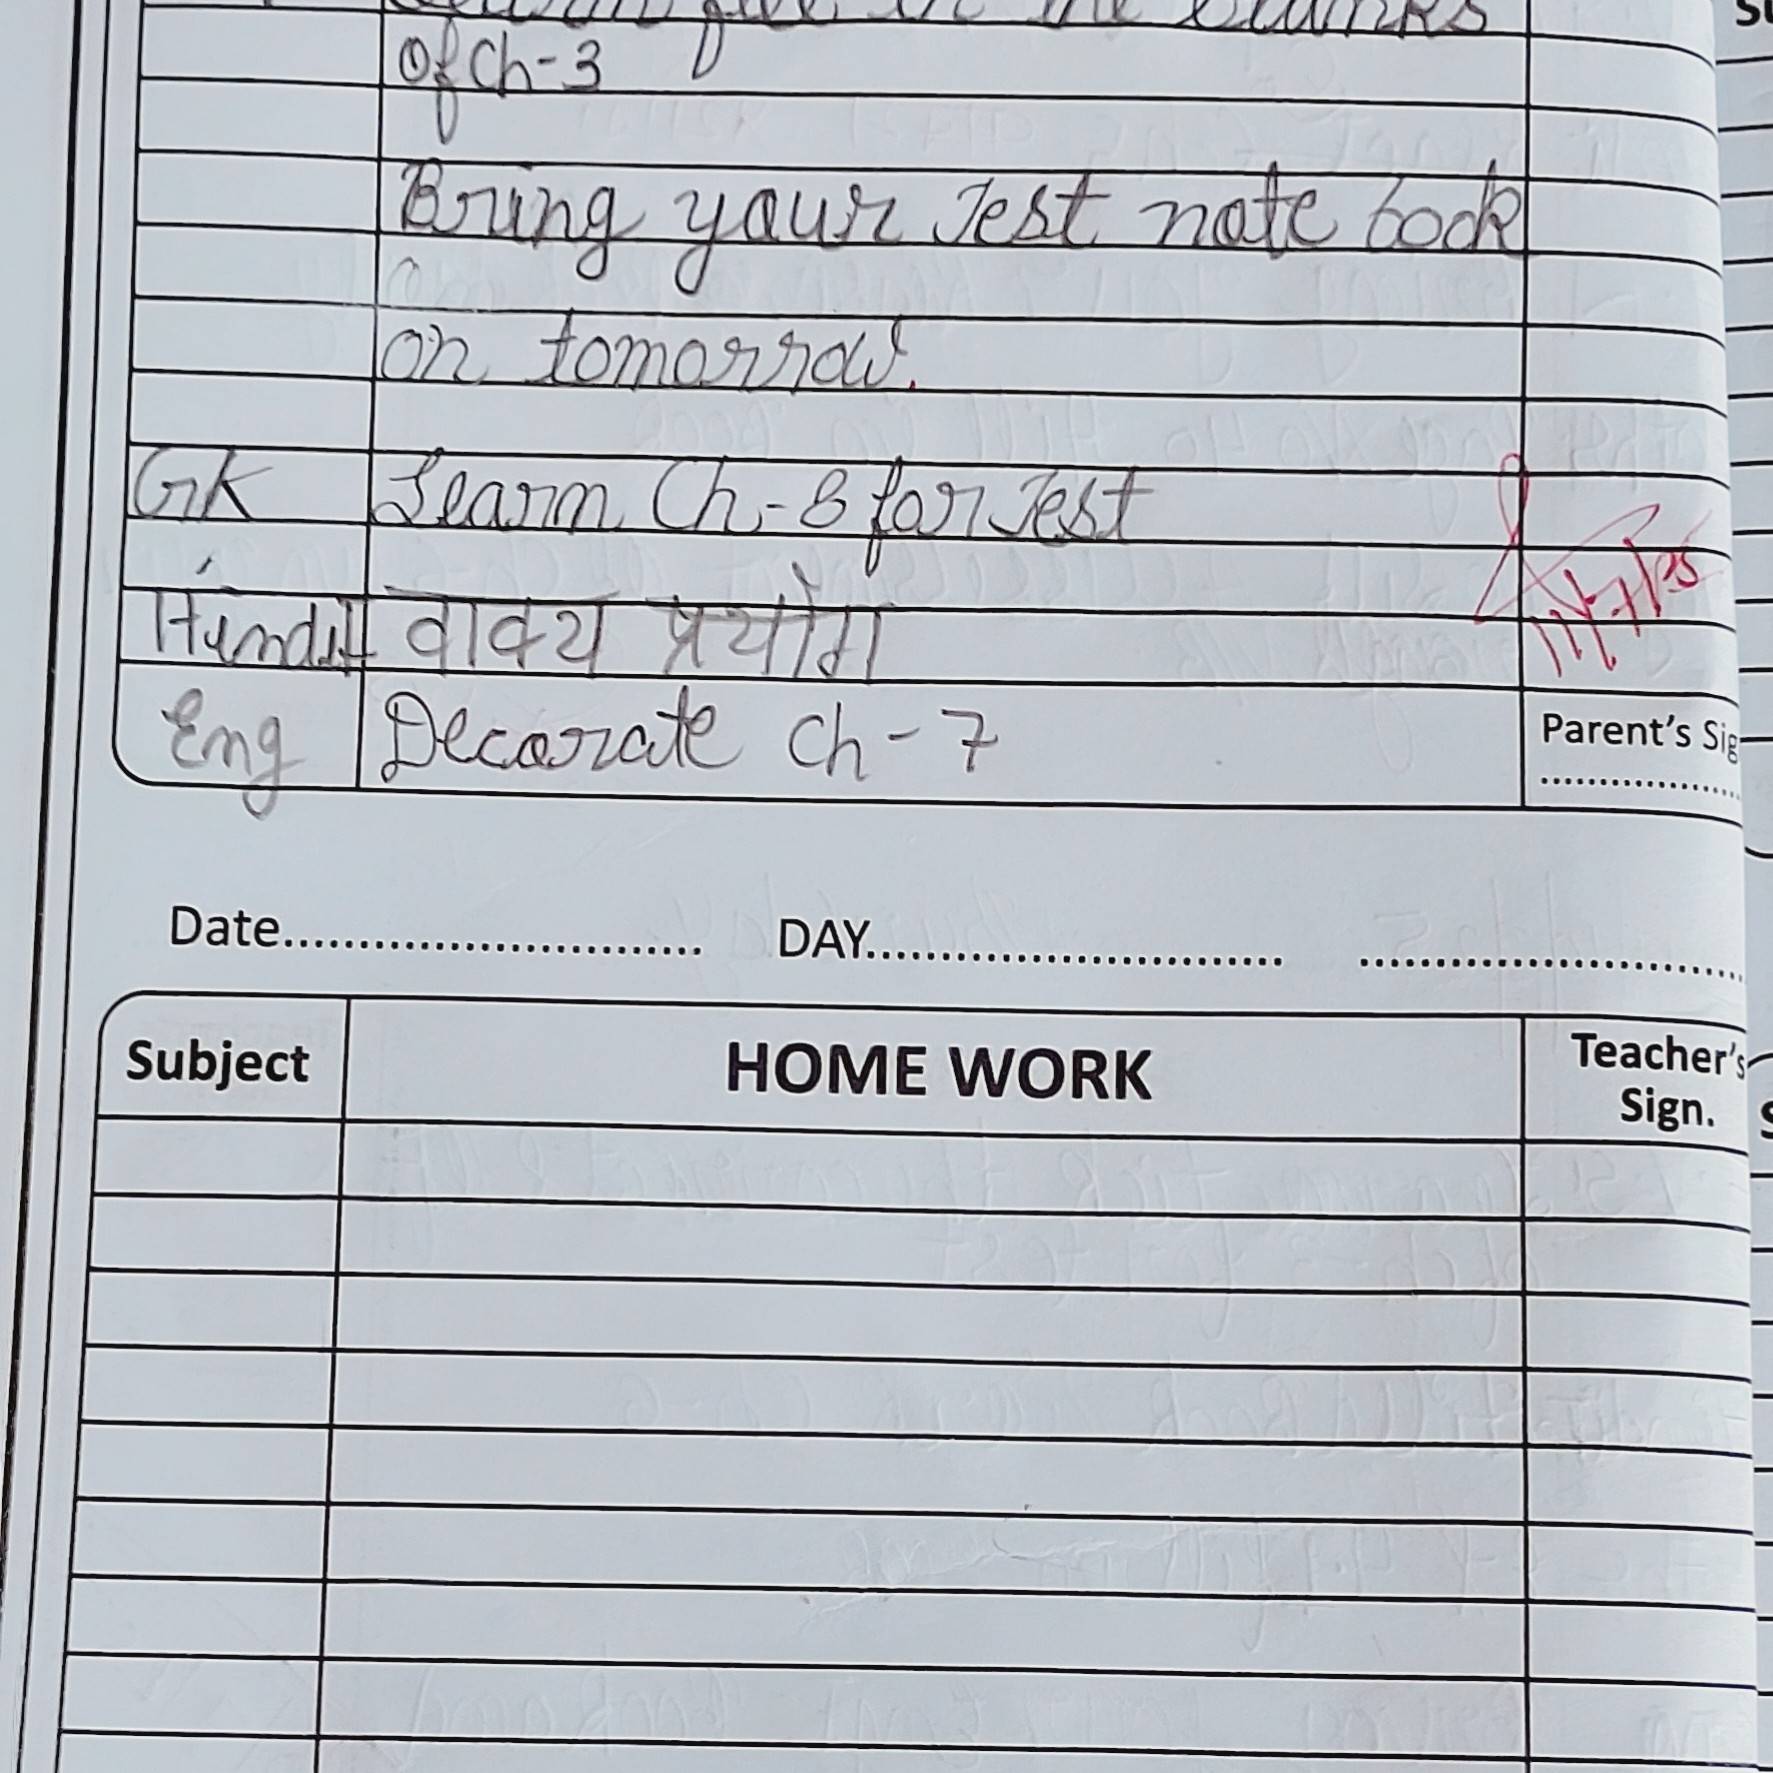 fill in the blanks
of Ch-3
Bring your Test note book
on tomorrow.
GK Learn Ch-8 for Test
Hindi वाक्य प्रयोग
Eng Decorate Ch-7
Parent's Sig
Date.............................. DAY.............................. ..............................
Subject HOME WORK Teacher's
Sign.